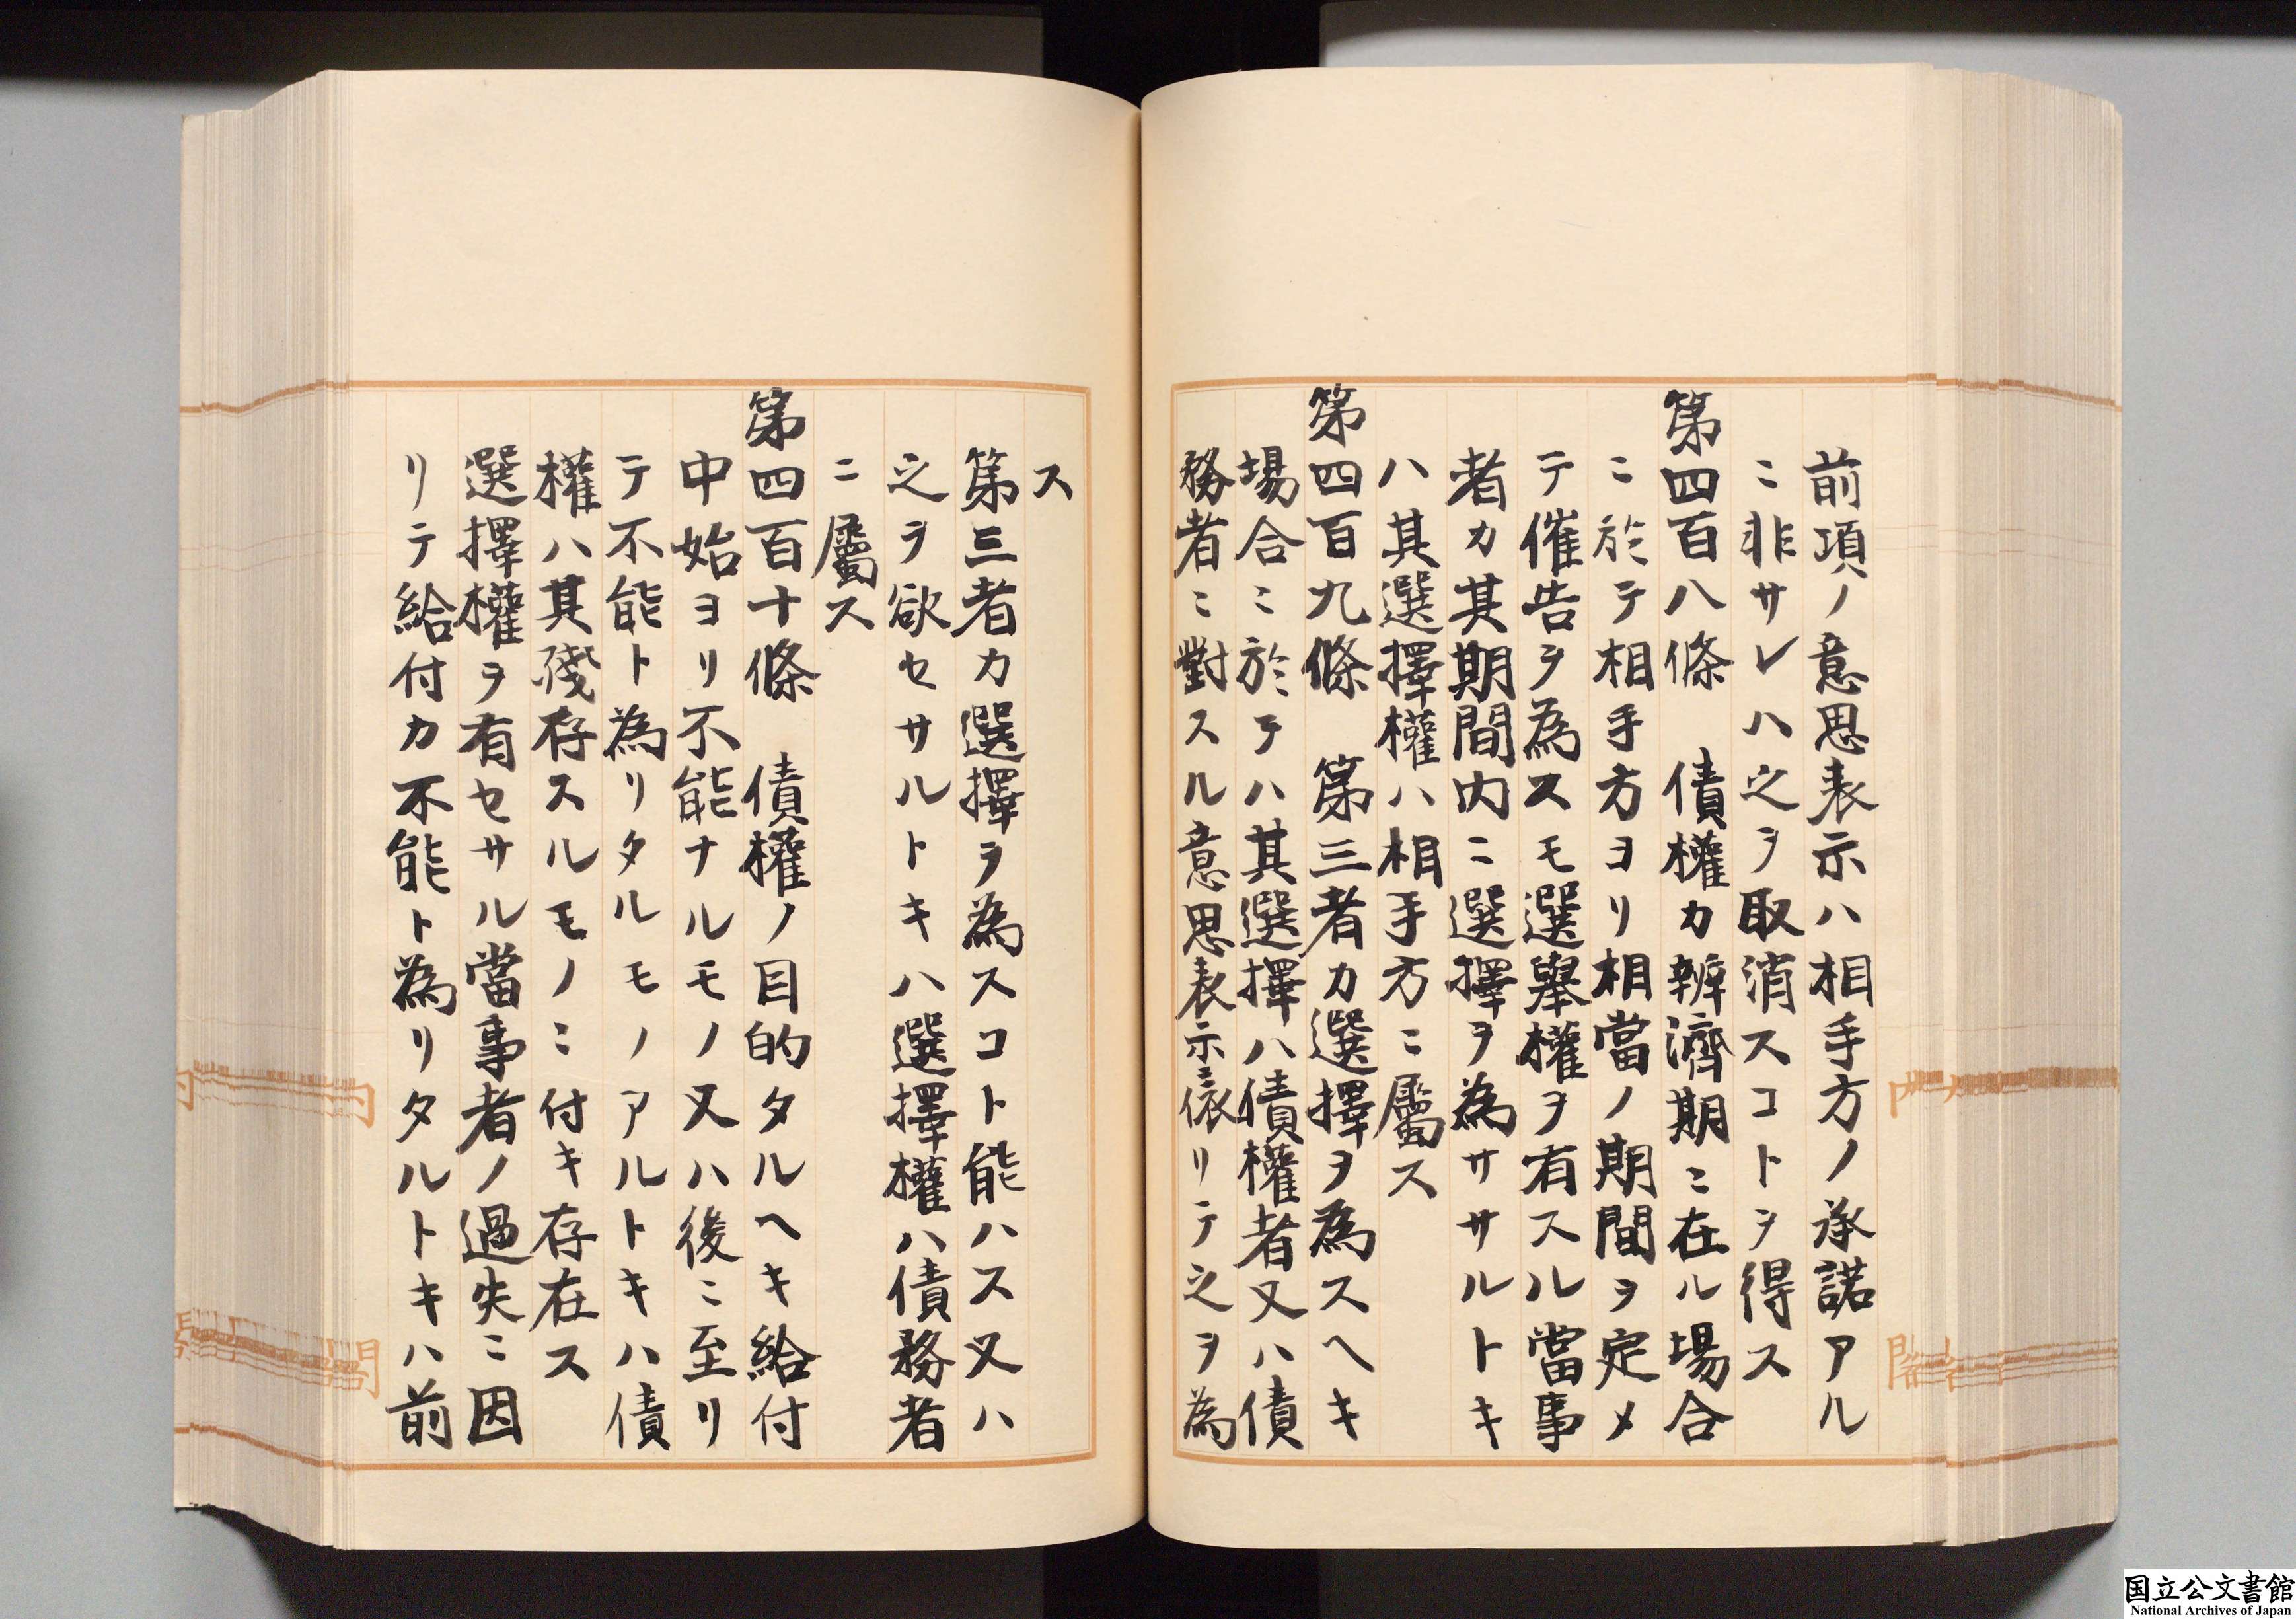 前項ノ意思表示ハ相手方ノ承諾アル
ニ非サレハ之ヲ取消スコトヲ得ス
第四百八條　債權カ辨濟期ニ在ル場合
ニ於テ相手方ヨリ相當ノ期間ヲ定メ
テ催告ヲ為スモ選舉權ヲ有スル當事
者カ其期間内ニ選擇ヲ為ササルトキ
ハ其選擇權ハ相手方ニ屬ス
第四百九條　第三者カ選擇ヲ為スヘキ
場合ニ於テハ其選擇ハ債權者又ハ債
務者ニ對スル意思表示ニ依リテ之ヲ為
ス
第三者カ選擇ヲ為スコト能ハス又ハ
之ヲ欲セサルトキハ選擇權ハ債務者
ニ屬ス
第四百十條　債權ノ目的タルヘキ給付
中始ヨリ不能ナルモノ又ハ後ニ至リ
テ不能ト為リタルモノアルトキハ債
權ハ其殘存スルモノニ付キ存在ス
選擇權ヲ有セサル當事者ノ過失ニ因
リテ給付カ不能ト為リタルトキハ前
国立公文書館
National Archives of Japan